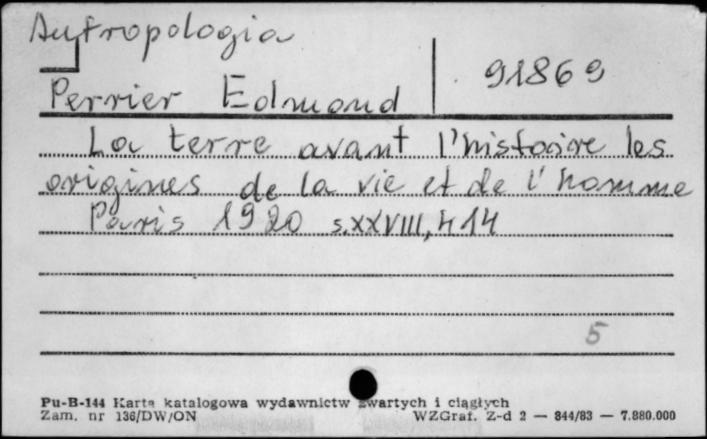 Antropologia
91869
Perrier Edmond
La terre avant l'histoire les
origines de la vie et de l'homme
Paris 1920 s.XXVIII, 414
5
Pu-B-144 Karta katalogowa wydawnictw zwartych i ciągłych
Zam. nr 136/DW/ON WZGraf. Z-d 2 — 844/83 — 7.880.000